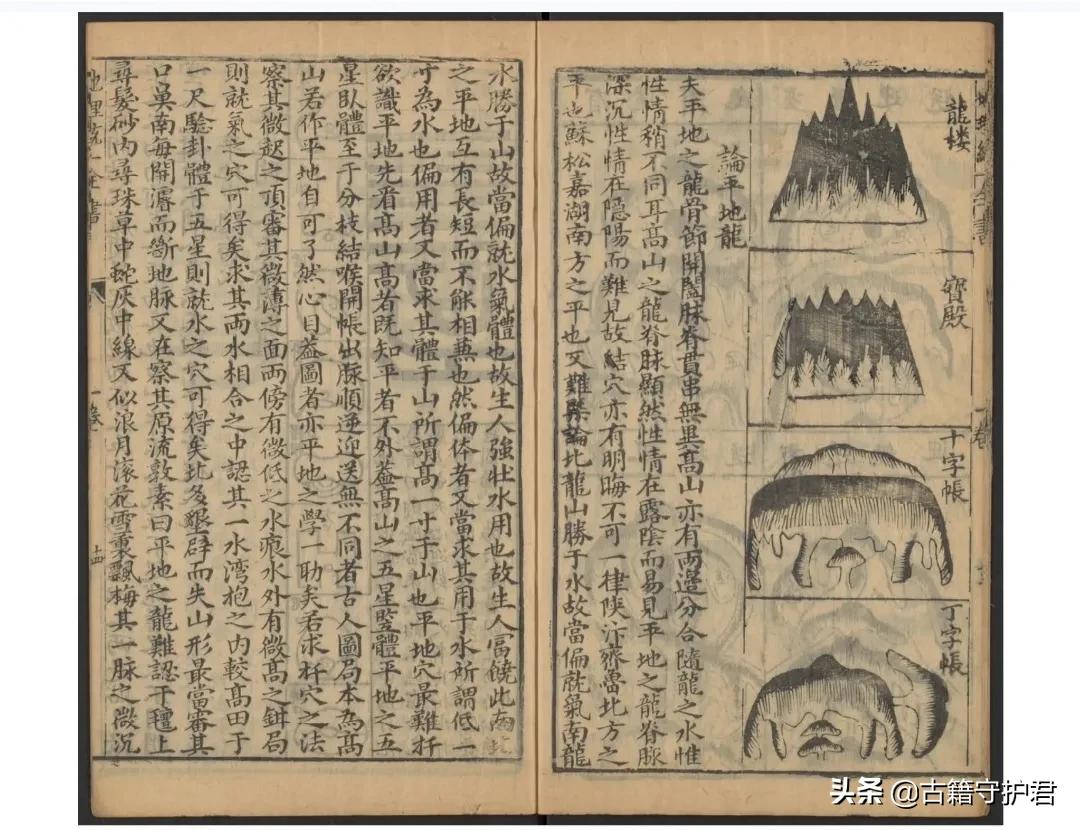 龍楼
寶殿
十字帳
丁字帳
論平地龍
夫平地之龍骨節開闔脉脊貫串無異高山亦有兩邊分合隨龍之水惟
性情稍不同耳高山之龍脊脉顯然性情在露陰而易見平地之龍脊脈
深沉性情在隐陽而難見故結穴亦有明晦不可一律陝汴齊魯北方之
平也蘇松嘉湖南方之平也又難槩論北龍山勝于水故當偏就氣南龍
水勝于山故當偏就水氣體也故生人強壮水用也故生人冨饒此南北
之平地互有長短而不能相兼也然偏体者又當求其用于水所謂低一
寸為水也偏用者又當求其體于山所謂高一寸于山也平地穴最難扦
欲識平地先看高山高者既知平者不外蓋高山之五星竪體平地之五
星臥體至于分枝結喉開帳出脉順逆迎送無不同者古人圖局本為高
山若作平地自可了然心目益圖者亦平地之學一助矣若求扦穴之法
察其微起之頂審其微薄之面两傍有微低之水痕水外有微高之鉗局
則就氣之穴可得矣求其两水相合之中認其一水湾抱之内較高田于
一尺驗卦體于五星則就水之穴可得矣北多墾辟而失山形最當審其
口薬南每開濬而斷地脉又在察其原流敦素曰平地之龍難認干種上
尋髮砂内尋珠草中蛇灰中線又似浪月滚花雪裏飄梅其一脉之微沉
地理統一全書
一卷
十四
头条 @古籍守护君